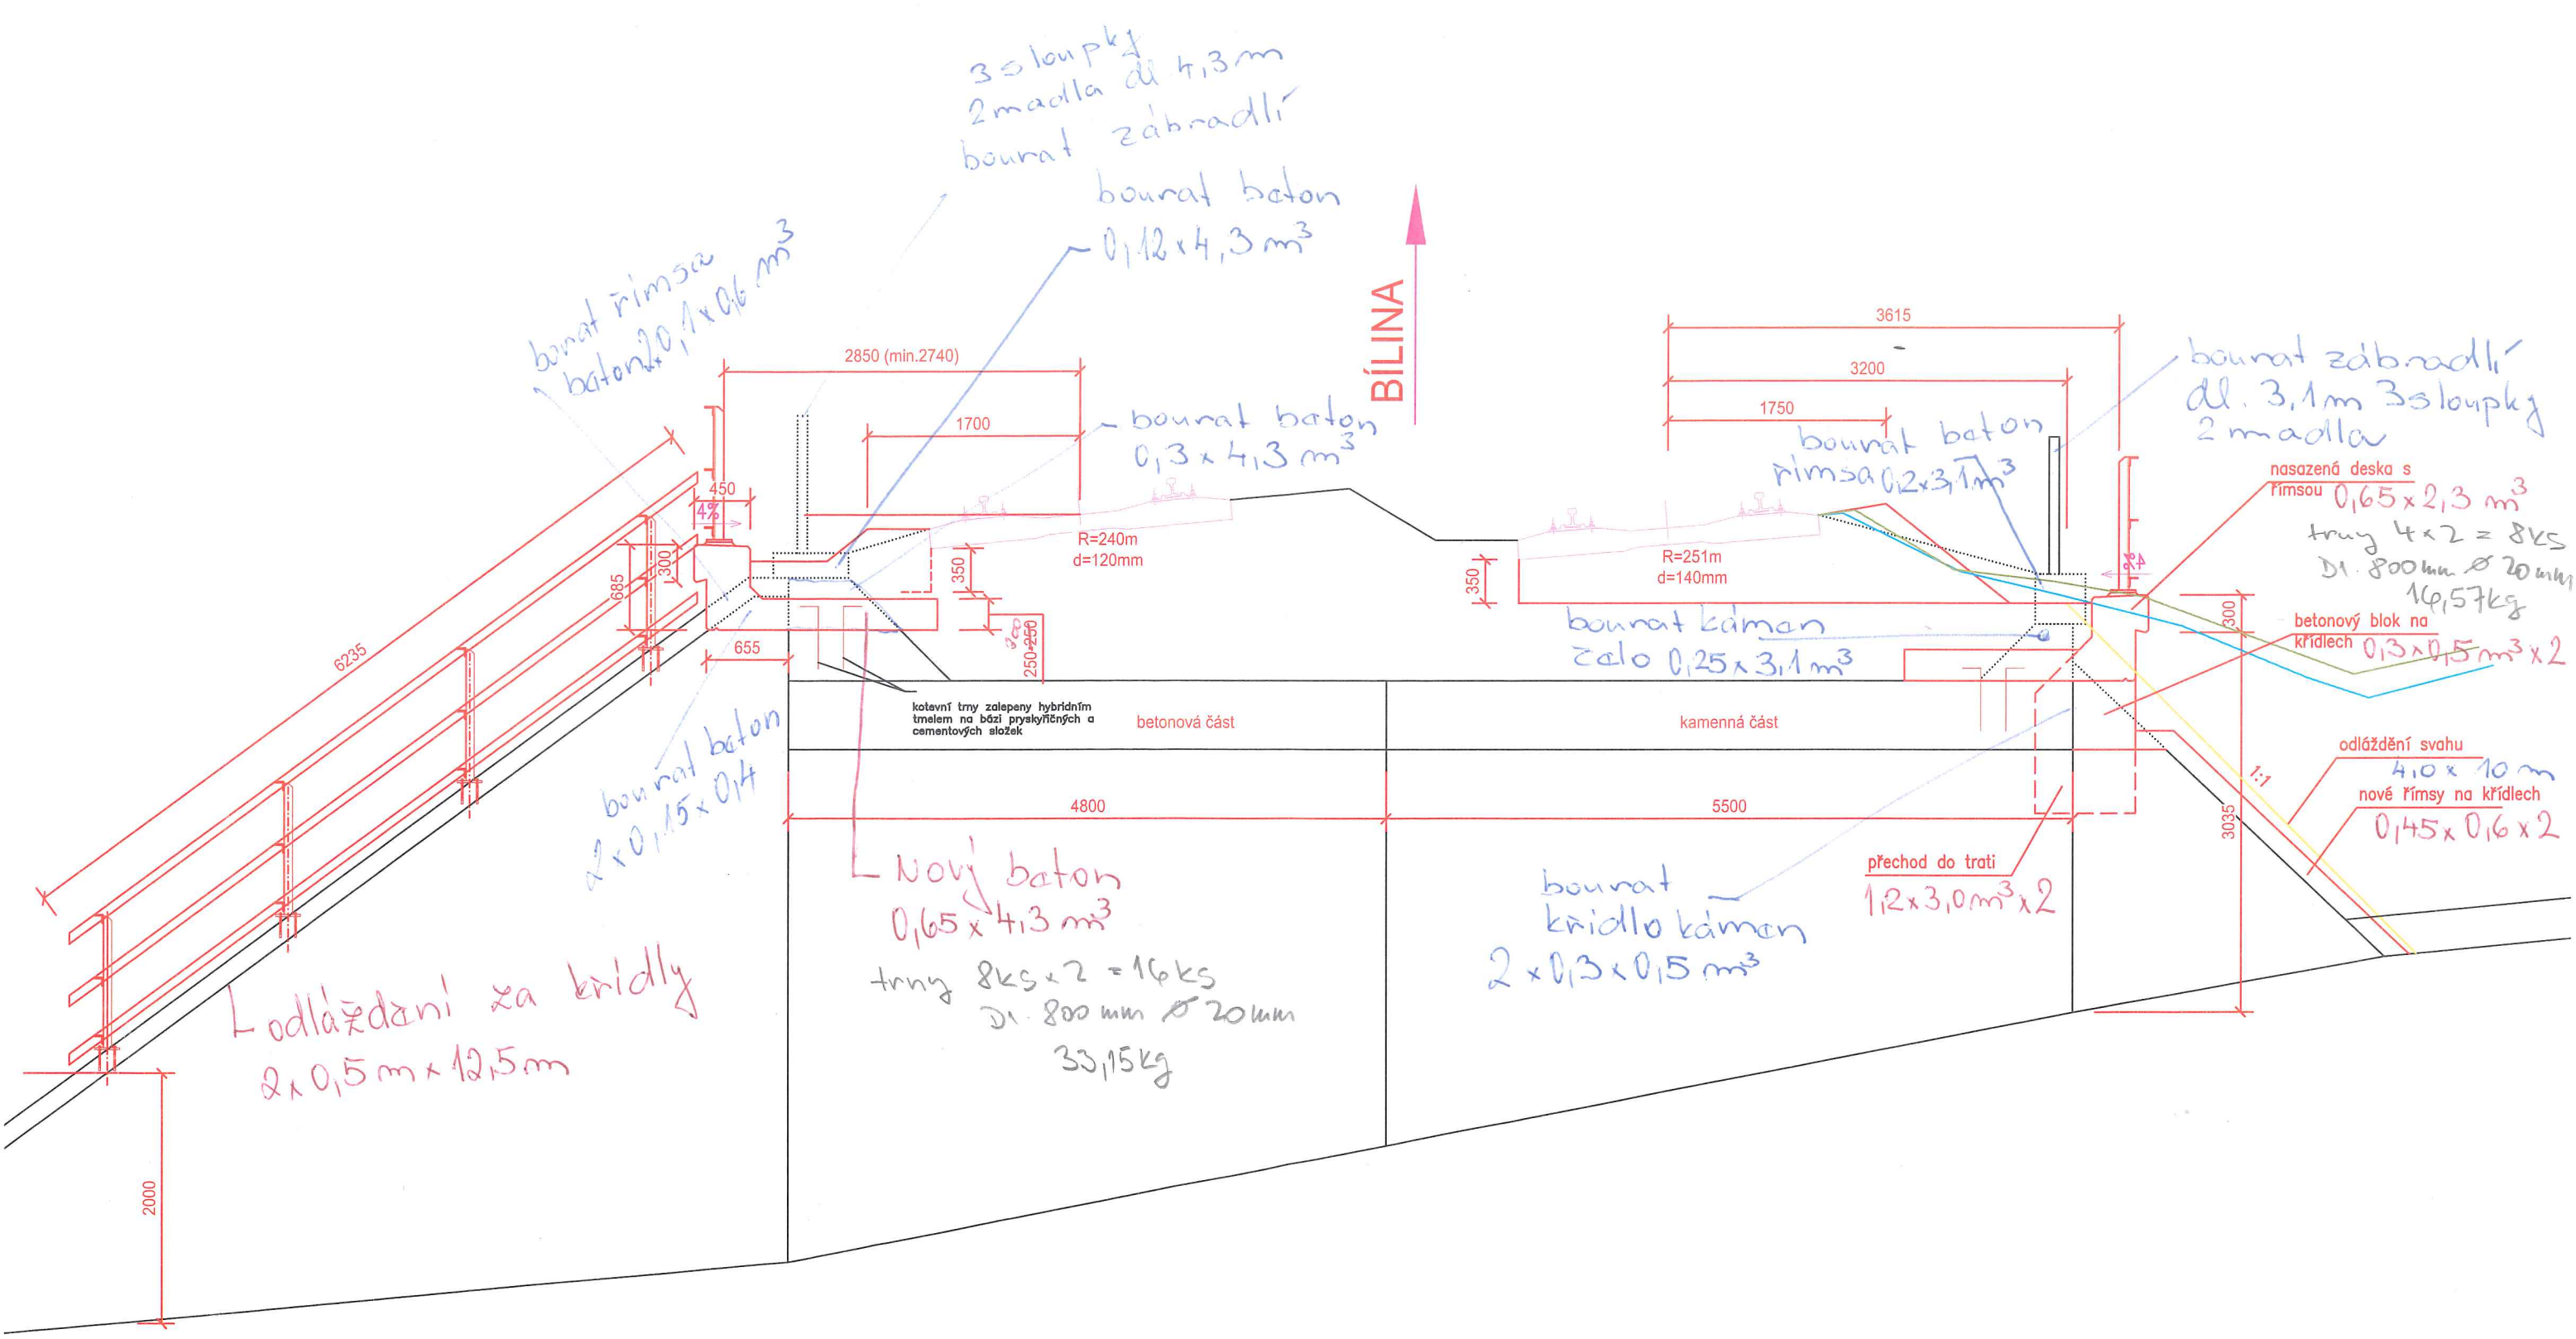 3 sloupky
2 madla dl 4,3 m
bourat zábradlí
bourat beton
0,12 x 4,3 m³
bourat římsa
beton 2x0,1 x 0,6 m³
2850 (min.2740)
1700
bourat beton
0,3 x 4,3 m³
BÍLINA
3615
3200
1750
bourat beton
římsa 0,2 x 3,1 m³
bourat zábradlí
dl. 3,1m 3 sloupky
2 madla
nasazená deska s
římsou 0,65 x 2,3 m³
trny 4 x 2 = 8ks
Dl. 800mm Ø 20mm
16,57kg
betonový blok na
křídlech 0,3 x 0,5 m³ x 2
450
4%
300
685
655
6235
R=240m
d=120mm
350
250-250
R=251m
d=140mm
350
4%
300
bourat kámen
čelo 0,25 x 3,1 m³
kotevní trny zalepeny hybridním
tmelem na bázi pryskyřičných a
cementových složek
betonová část
kamenná část
bourat beton
2 x 0,15 x 0,4
4800
5500
odláždění svahu
4,0 x 10 m
1:1
nové římsy na křídlech
0,45 x 0,6 x 2
3035
přechod do trati
1,2 x 3,0 m³ x 2
Nový beton
0,65 x 4,3 m³
trny 8ks x 2 = 16ks
Dl. 800 mm Ø 20mm
33,15kg
bourat
křídlo kámen
2 x 0,3 x 0,5 m³
odláždění za křídly
2 x 0,5 m x 12,5 m
2000